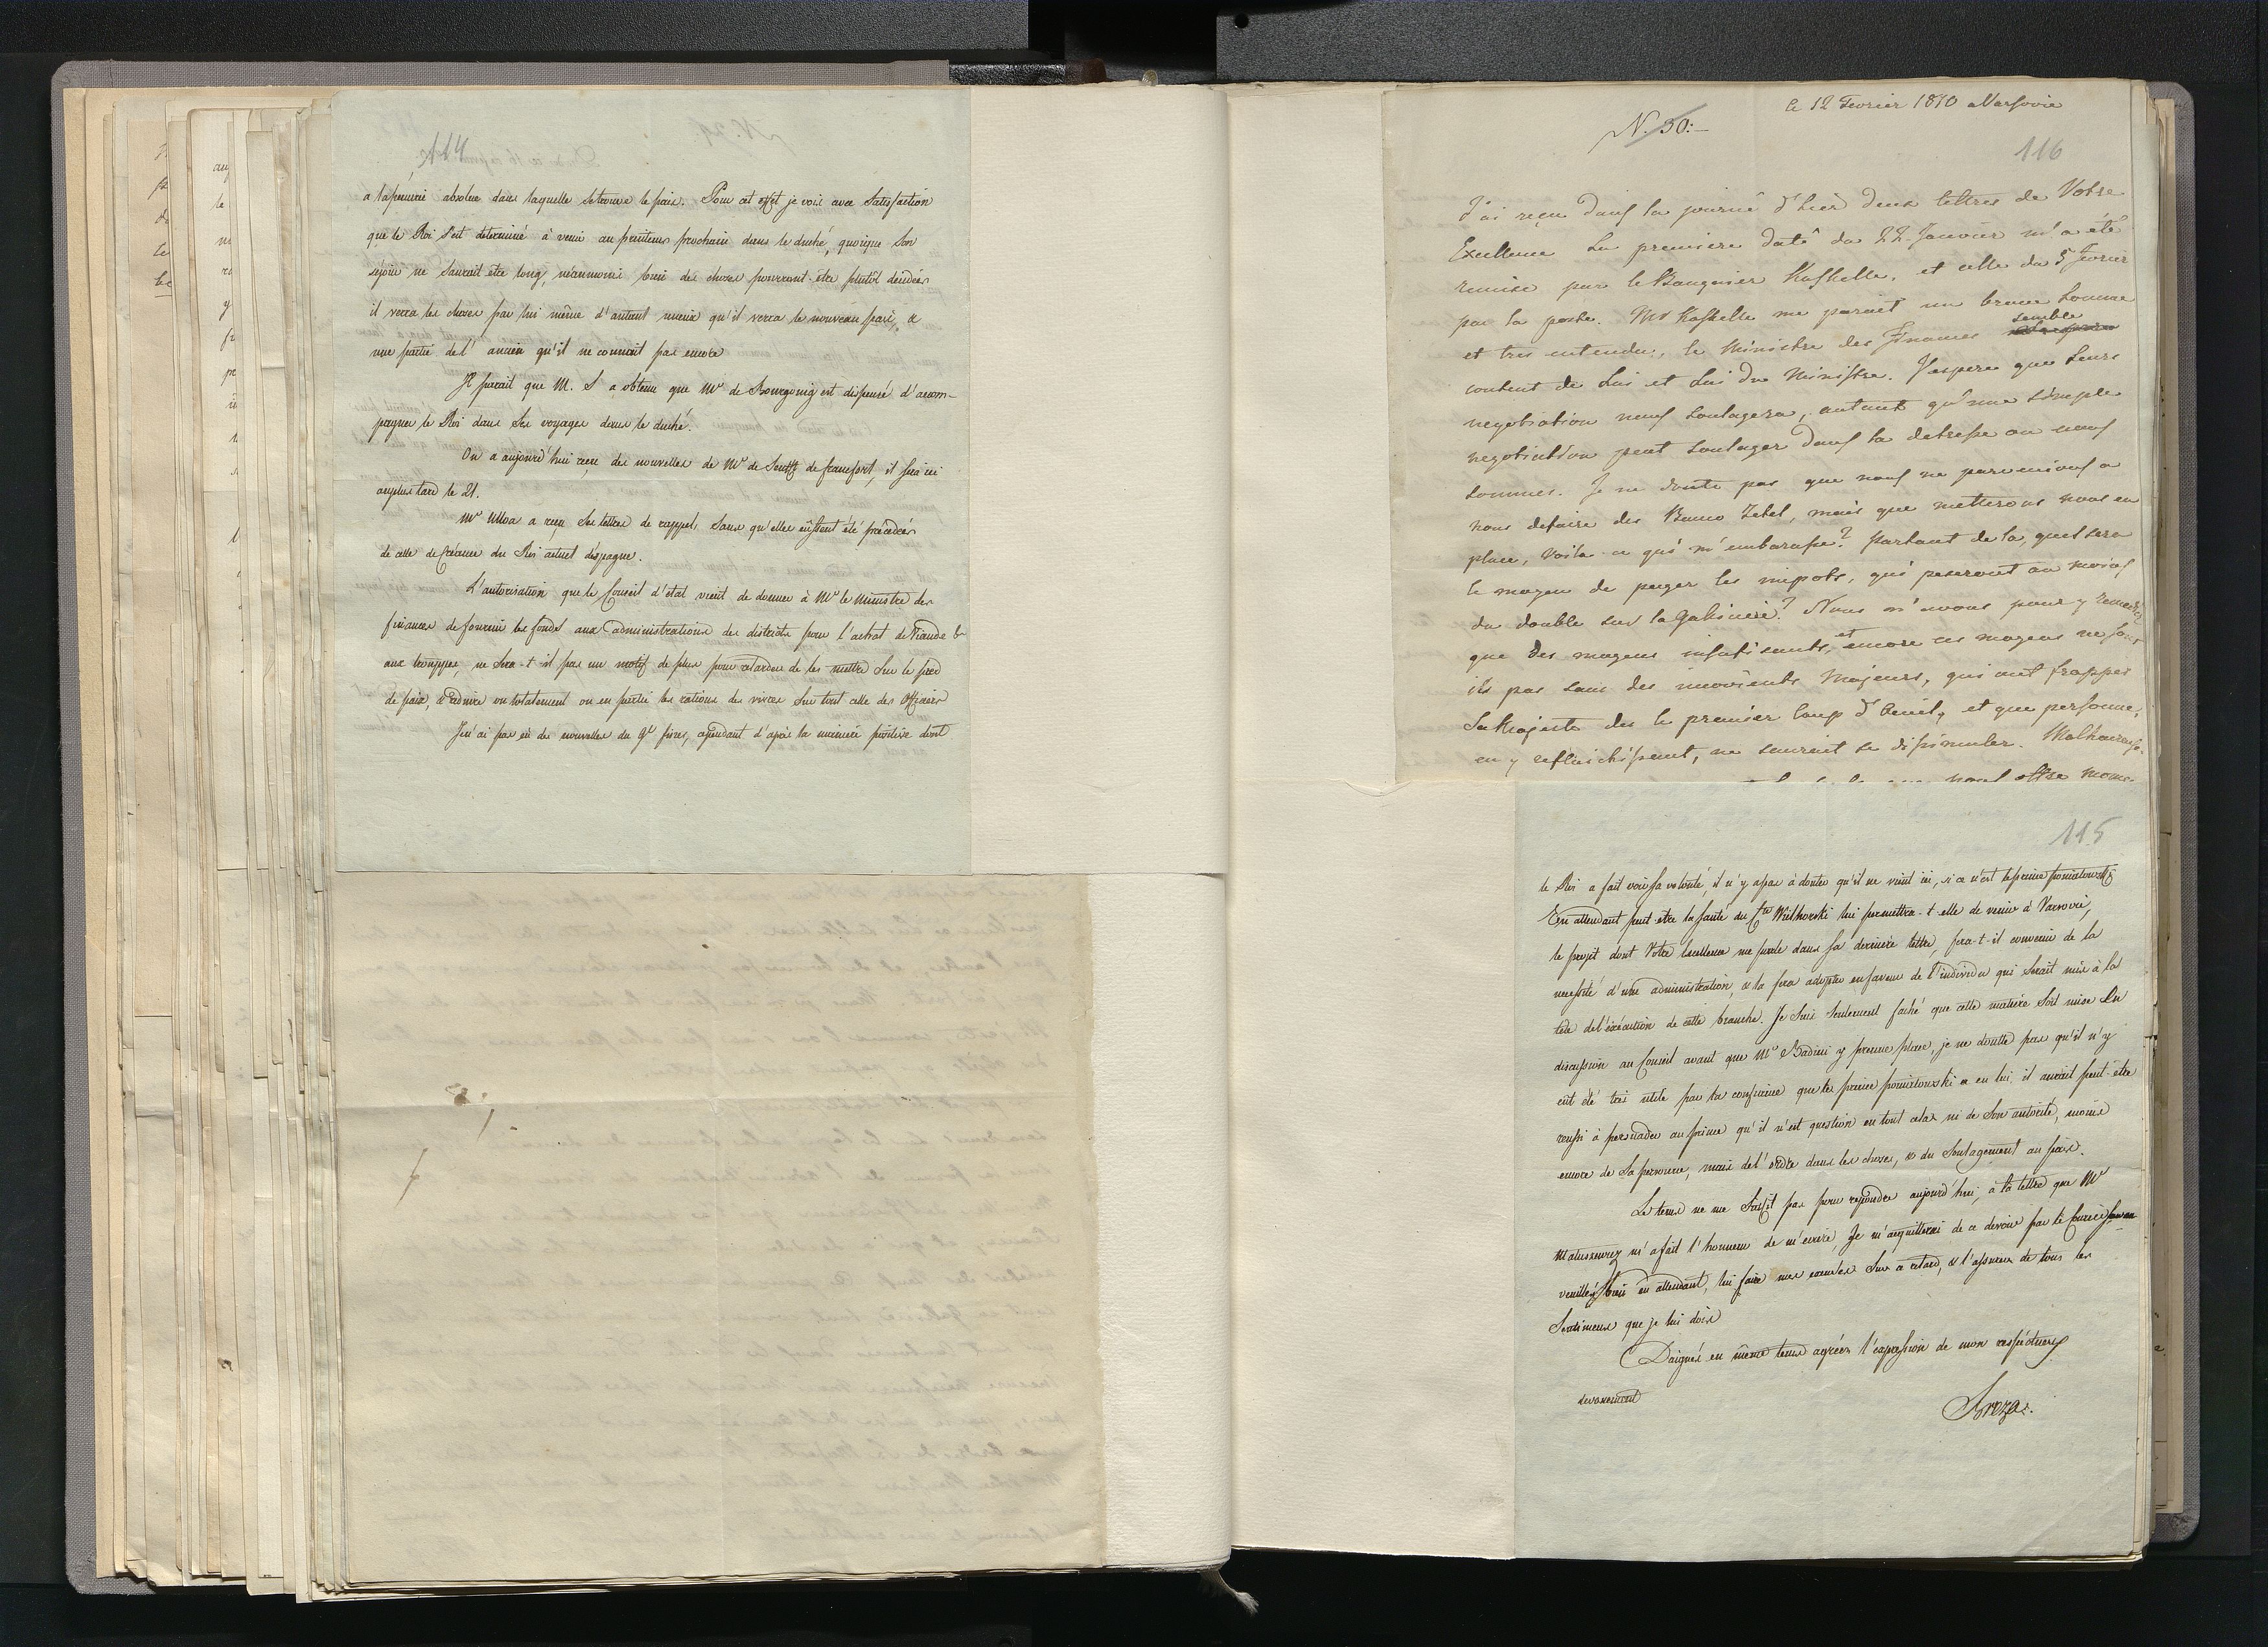 114
a la penurie absolue dans laquelle se trouve le païs. Pour cet effet je vois avec Satisfaction
que le Roi s'est determiné à venir au printems prochain dans le duché, quoique Son
séjour ne Saurait etre long, néanmoins bien des choses pourront-être plutôt decidées
il verra les choses par lui même d'autant mieux qu'il verra le nouveau païs, &
une partie de l'ancien qu'il ne connait pas encore
Il parait que M. S a obtenu que Mr de Bourgoing est dispensé d'accom-
pagner le Roi dans Ses voyages dans le duché.
On a aujourd'hui reçu des nouvelles de Mr de Senfft de francfort, il sera ici
au plus tard le 21.
Mr Ulloa a reçu Ses lettres de rappel, Sans qu'elles eussent été précédées
de celle de Créance du Roi actuel d'espagne.
L'autorisation que le Conseil d'état vient de donner à Mr le Ministre des
finances de fournir les fonds aux administrations des districts pour l'achat de Viande &
aux trouppes, ne Sera-t-il pas un motif de plus pour retarder de les mettre Sur le pied
de paix, & reduire ou totalement ou en partie les rations des vivres Sur tout celle des Officiers
Je n'ai pas eû des nouvelles du gl , cependant d'après la manière positive dont
le 12 Fevrier 1810 a Varsovie
N. 30:
116
J'ai reçu dans la journé d'hier deux lettres de Votre
Excellence La premiere daté du 22. Janvier m'a été
remise par le Banquier Kaskelle, et celle du 5 fevrier
par la poste. Mr Kaskelle me parait un brave homme
et tres entendu, le Ministre des Finances semble
content de Lui et Lui du Ministre. J'espere que Leurs
negotiation nous soulagera, autant qu'une simple
negotiation peut soulager dans la detresse ou nous
sommes. Je ne doute pas que nous ne parvenions a
nous defaire des Banco Zetel, mais que metterons nous en
place, voila ce qui m'embarasse? partant de la, quel sera
le moyen de payer les impots, qui peseront au moins
du double sur la Galicie? Nous n'avons pour y remedier
que des moyens insufisants, et encore ces moyens ne sont
ils pas sans des inconvients Majeurs, qui ont frapper
Sa Majesté des le premier coup d'oeuil, et que personne,
en y reflechissant, ne saurait se dissimuler. Malheureuse-
nous offre mome-
115
le Roi a fait voir sa volonté, il n'y a pas à douter qu'il ne vient ici, si ce n'est le prince poniatowski
En attendant peut etre la Santé du Cte Wielhorski lui permettra-t-elle de venir à Varsovie,
le projet dont Votre Excellence me parle dans sa dernière lettre, fera-t-il convenir de la
necessité d'une administration, & la fera adopter en faveur de l'individu qui Serait mis à la
tête de l'éxécution de cette branche. Je Suis Seulement faché que cette matière Soit mise En
discussion au Conseil avant que Mr Badeni y prenne place, je ne doutte pas qu'il n'y
eut été très utile par la confiance que le prince poniatowski a en lui, il aurait peut-être
reussi à persuader au prince qu'il n'est question en tout cela ni de Son autorité, moins
encore de Sa personne, mais de l'ordre dans les choses, & du Soulagement au païs.
Le tems ne me Suffit pas pour repondre aujourd'hui, à la lettre que Mr
Matuszewicz m'a fait l'honneur de m'ecrire, Je m'acquitterai de ce devoir par le Courrier
veuillés bien en attendant, lui faire mes excuses Sur ce retard, & l'assurer de tous les
Sentimens que je lui dois
Daignés en même tems agréer l'expression de mon respectueux
devouement
Breza.